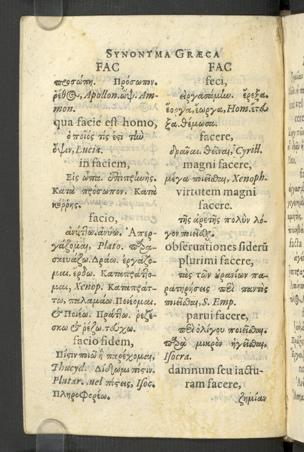 SYNONYMA GRÆCA
FAC
προσώπη. Πρόσωπον.
Apollon. ὤψ, Am-
mon.
qua facie est homo,
ὁποῖός τις ἐςὶ τὼ
ὄψιν, Lucia.
in faciem,
Εἰς ὦπα.
Κατὰ πρόσωπον. Κατὰ
κόῤῥης.
facio,
ἀνύτω. ἀνύω. Ἀπερ-
γάζομαι, Plato.
σκευάζω. Δράω. ἐργάζο-
μαι. ἔρδω. Καταπράττο-
μαι, Xenop. Καταπράτ-
τω. παλαμάω. Ποιέομαι,
& Ποιέω. Πράττω. ῥέζε-
σκω & ῥέζω.
facio fidem,
Πίςιν ποιῶ ἢ παρέχομαι,
Thucyd. Δίδωμι πίςιν.
Plutar. vel πίςεις, Isoc.
Πληροφορέω.
FAC
feci,
εἰργασάμην. ἔρεξα.
ἔοργα, Hom.
facere,
δρᾶσαι. θεῖναι, Cyrill.
magni facere,
μέγα ποιεῖσθαι, Xenoph.
virtutem magni
facere.
τῆς ἀρετῆς πολὺν λό-
γον ποιεῖσθαι.
obseruationes siderũ
plurimi facere,
τὰς τῶν ἀςέρων πα-
ρατηρήσεις περὶ παντὸς
ποιεῖσθαι, S. Emp.
parui facere,
περὶ ὀλίγου ποιεῖσθαι.
παρὰ μικρὸν ἡγεῖσθαι,
Isocra.
damnum seu iactu-
ram facere,
ζημίαν